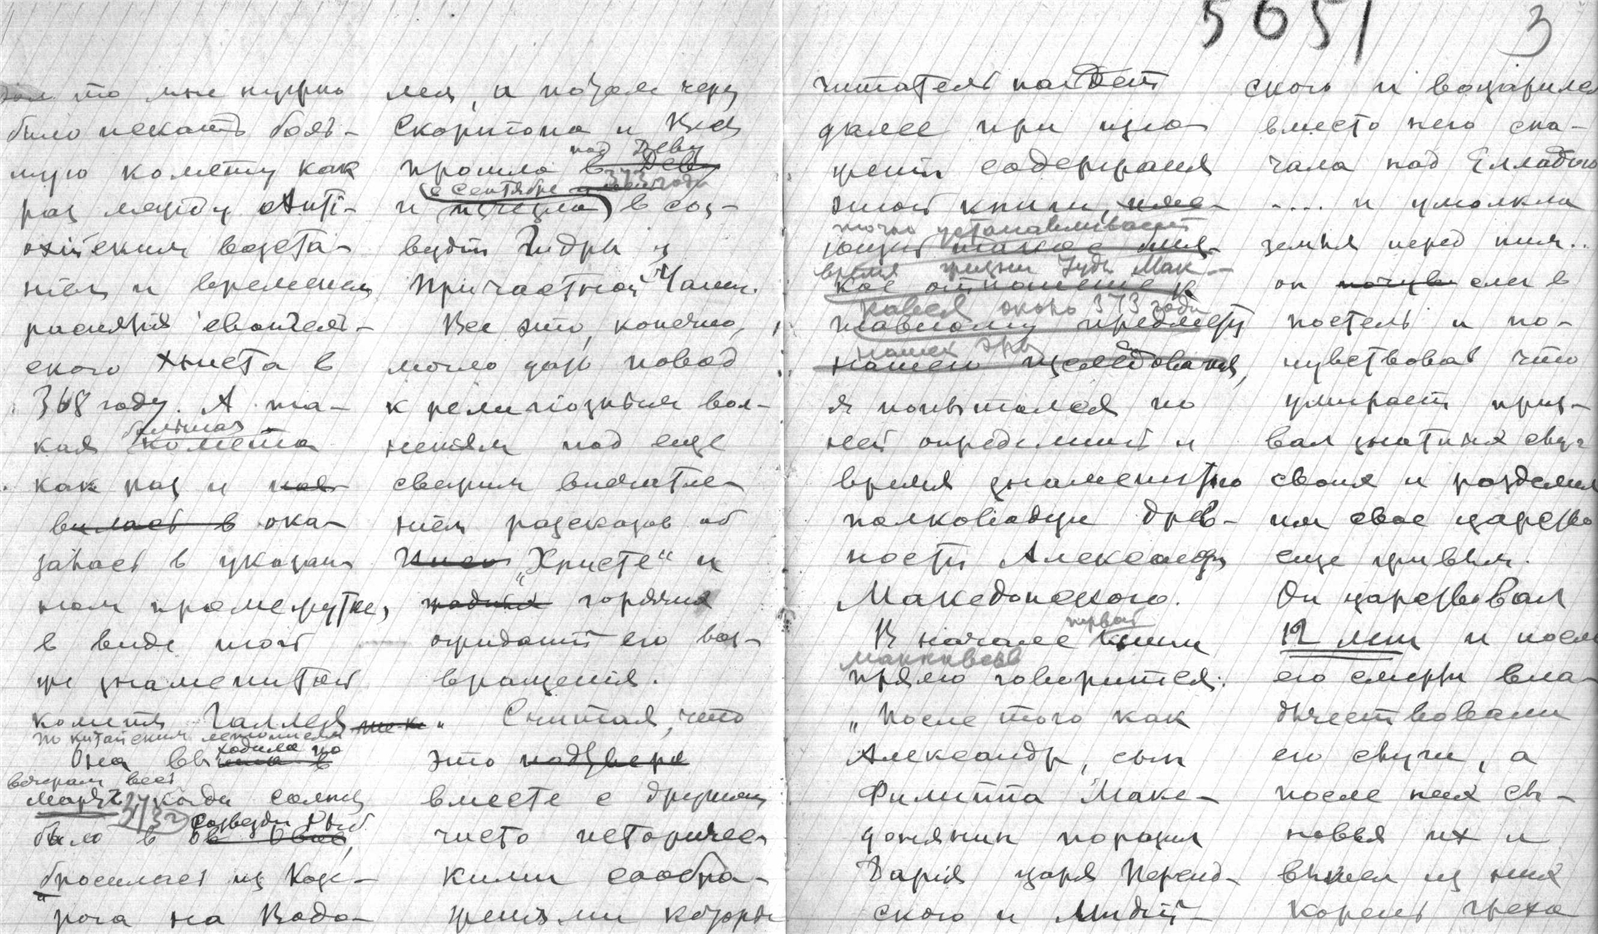 5651
3
то мне нужно
было искать боль-
шую комету как
раз между Анті-
охійским возста-
нием и временем
распятія евангель-
ского Христа в
368 году. А та-
большая
кая комета
как раз и
вилась в ока-
залась в указан-
ном промежутке,
в виде той
же знаменитой
кометы Галлея
по китайским летописям
Она
ходила по
вечерам весь
март когда солнце
373
созвездии Рыб
было в
бросилась из Козе-
рога на Водо-
лея, и потом через
Скорпiона и Весы
под Деву
прошла в Деву
в сентябре 373 года
и изчезла в соз-
вездіи Гидры и
Причастной Чаши.
Все это, конечно,
могло дать повод
к религиозным вол-
неніям под еще
свежим впечатле-
нием разсказов об
„Христе“ и
горячих
ожиданій его воз-
вращения.
Считая, что
это подтверж
вместе с другими
чисто историчес-
кими сообра-
женіями которые
читатель найдет
далее при изло-
жении содержания
этой книги,
точно устанавливает
время жизни Иуды Мак-
кое отношение к
кавея около 373 года
главному предмету
нашей эры
нашего изследования,
я попытался по
ней определить и
время знаменитого
полководца древ-
ности Александра
Македонского.
первой
В начале книги
Маккавеев
прямо говорится:
„После того как
Александр, сын
Филиппа Маке-
донянин поразил
Дарія царя Персид-
ского и Мидій-
ского и воцарился
вместо него сна-
чала под Елладою
.... и умолкла
земля перед ним..
он слег в
постель и по-
чувствовав что
умирает приз-
вал знатных слуг
своих и разделил
им свое царство
еще при живым.
Он царствовал
12 лет и после
его смерти вла-
дычествовали
его слуги, а
после них сы-
новья их и
вышел из них
корень греха